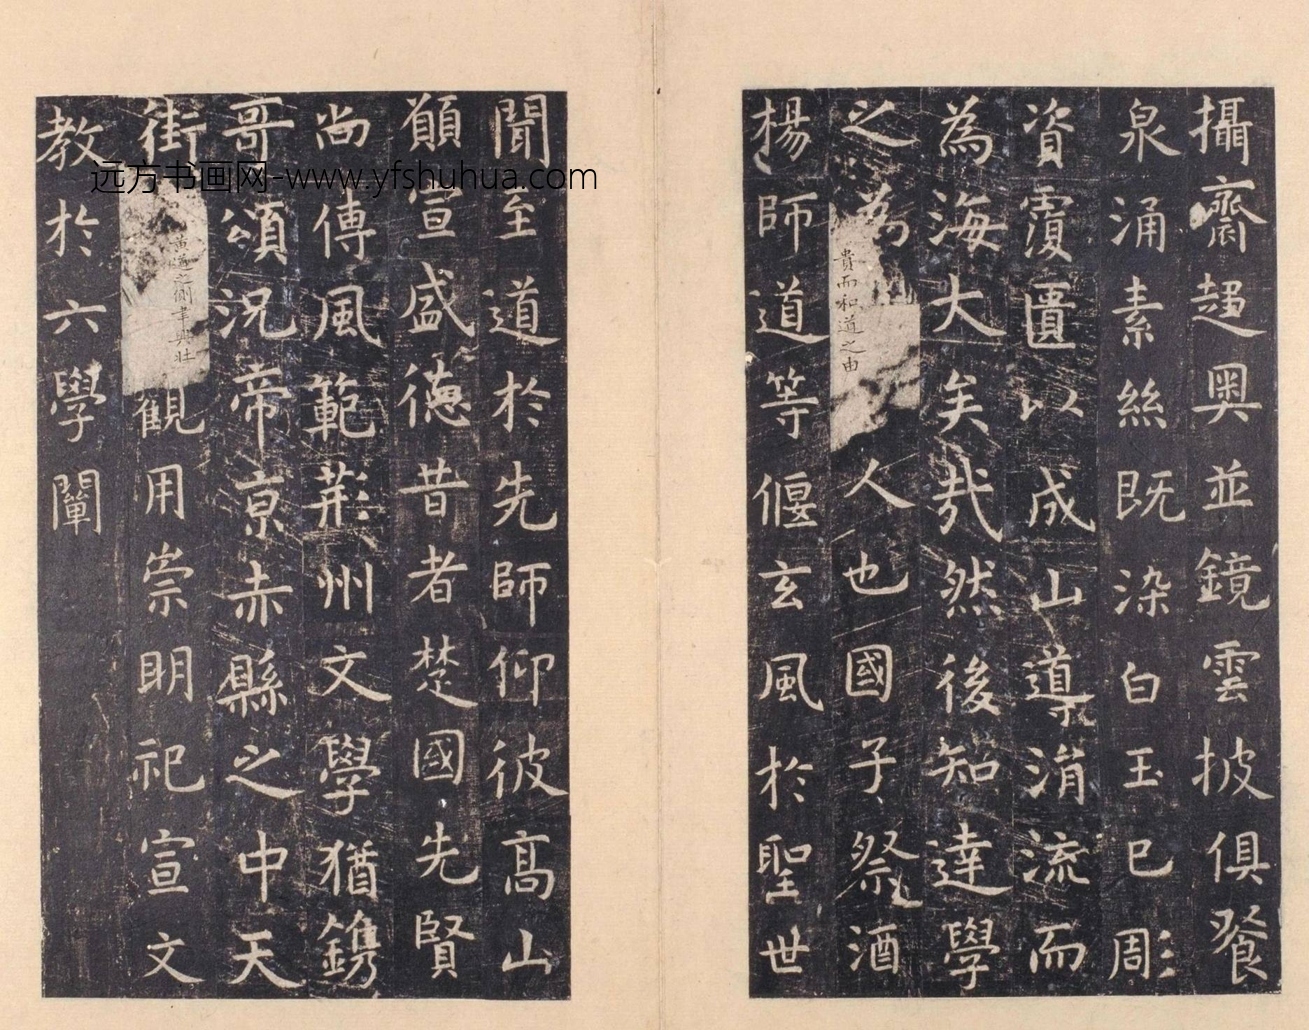 攝齋趍奧並鏡雲披俱餐
泉涌素絲既染白玉已彫
資覆匱以成山導涓流而
為海大矣哉然後知達學
之為貴而和道之由人也國子祭酒
楊師道等偃玄風於聖世
聞至道於先師仰彼高山
願宣盛德昔者楚國先賢
尚傳風範荊州文學猶鐫
哥頌況帝京赤縣之中天
街黃道之側聿興壯觀用崇明祀宣文
教於六學闡
远方书画网-www.yfshuhua.com